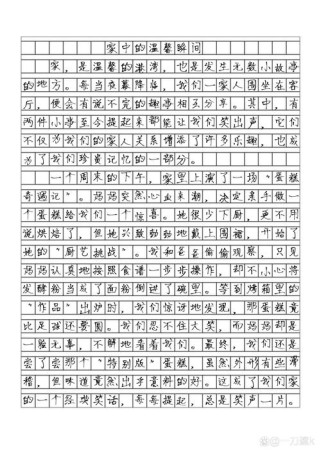 家中的温馨瞬间
家，是温馨的港湾，也是发生无数小故事
的地方。每当夜幕降临，我们一家人围坐在客
厅，便会有说不完的趣事相互分享。其中，有
两件小事至今提起来都能让我们笑出声，它们
不仅为我们的家人关系增添了许多乐趣，也成
为了我们珍贵记忆的一部分。
一个周末的下午，家里上演了一场“蛋糕
奇遇记”。妈妈突然心血来潮，决定亲手做一
个蛋糕给我们一个惊喜。她很少下厨，更不用
说烘焙了，但她兴致勃勃地戴上围裙，开始了
她的“厨艺挑战”。我和爸爸偷偷观察，只见
妈妈认真地按照食谱一步步操作，却不小心将
发酵粉当成了面粉倒进了碗里。等到烤箱里的
“作品”出炉时，我们惊讶地发现，那蛋糕竟
比足球还要圆。我们忍不住大笑，而妈妈却是
一脸无辜，不解地看着我们。最终，我们还是
尝了尝那个“特别版”蛋糕，虽然外形有些滑
稽，但味道竟然出乎意料的好。这成了我们家
的一个经典笑话，每每提起，总是笑声一片。